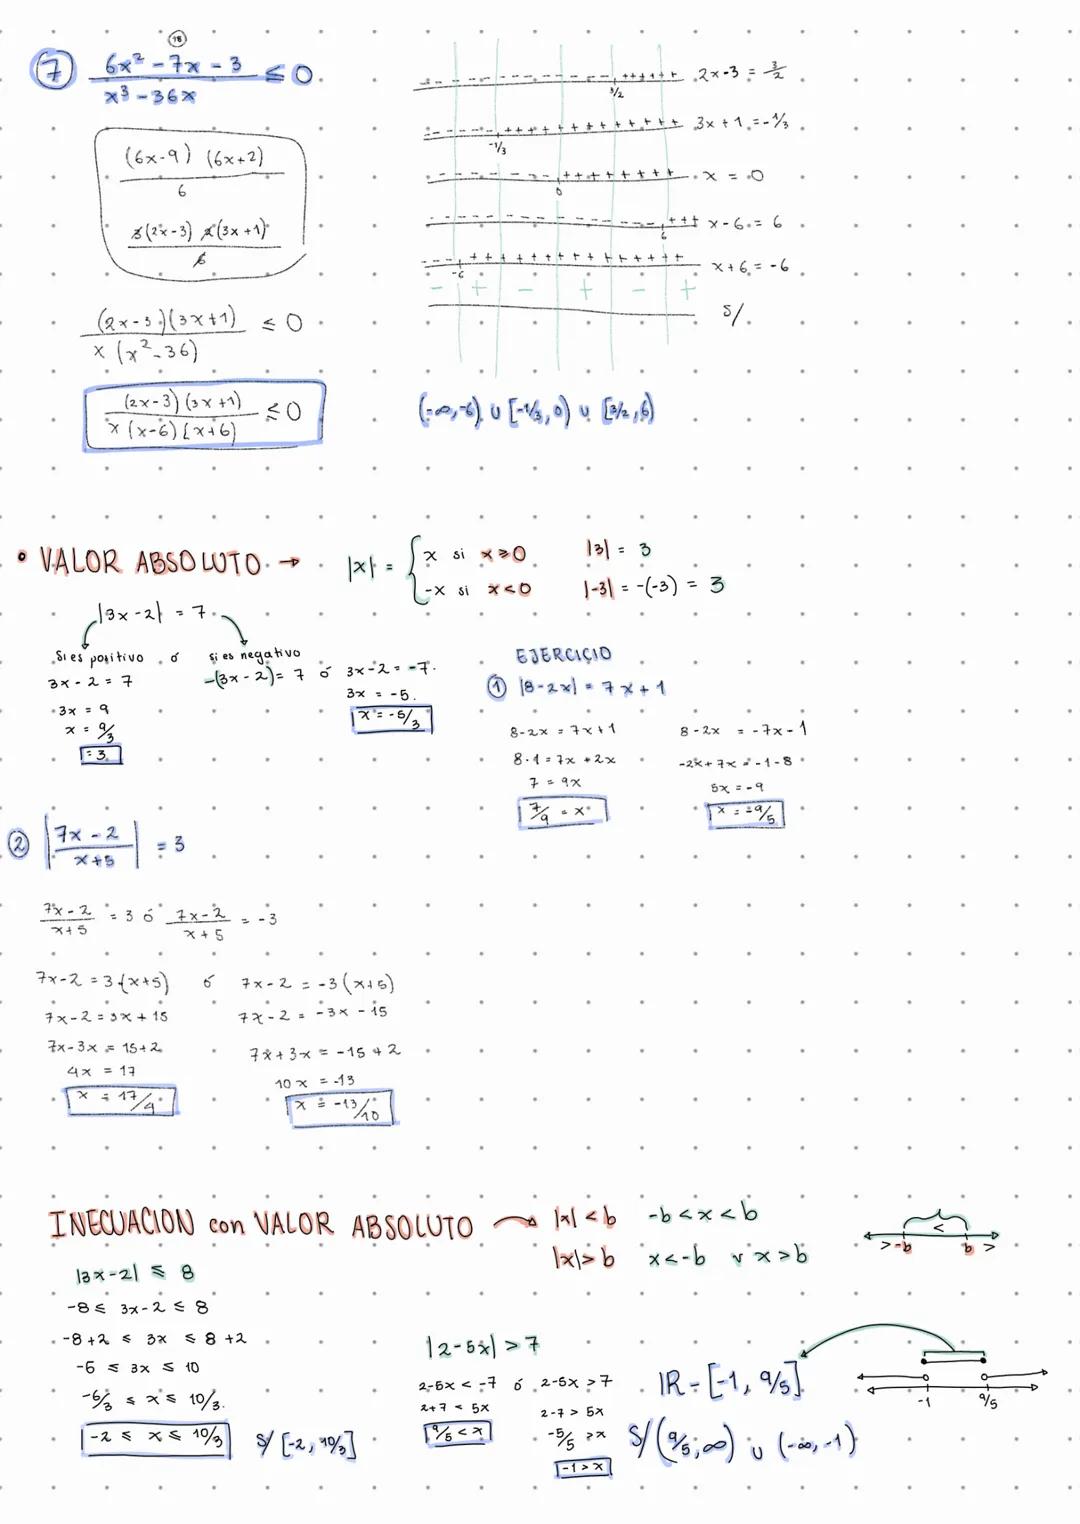 18
7 (6x² - 7x - 3)/(x³ - 36x) ≤ 0
(6x-9) (6x+2)
6
3(2x-3) 2(3x+1)
6
(2x-3)(3x+1) ≤ 0
x (x²-36)
(2x-3)(3x+1) ≤ 0
x (x-6)(x+6)
- - - - + + + + 2x-3 = 3/2
3/2
- - - - + + + + 3x+1 = -1/3
-1/3
- - - - + + + + x = 0
0
- - - - + + + x-6 = 6
6
- - - + + + + x+6 = -6
-6
- + - + - +
S/.
(-∞,-6) ∪ [-1/3, 0) ∪ [3/2, 6)
• VALOR ABSOLUTO → |x| = { x si x ≥ 0
-x si x < 0
|3| = 3
|-3| = -(-3) = 3
|3x-2| = 7
Si es positivo ó si es negativo
3x-2 = 7 -(3x-2) = 7 ó 3x-2 = -7
3x = 9 3x = -5
x = 9/3 x = -5/3
= 3
EJERCICIO
1 |8-2x| = 7x+1
8-2x = 7x+1 8-2x = -7x-1
8-1 = 7x+2x -2x+7x = -1-8
7 = 9x 5x = -9
7/9 = x x = -9/5
2 |(7x-2)/(x+5)| = 3
(7x-2)/(x+5) = 3 ó (7x-2)/(x+5) = -3
7x-2 = 3(x+5) ó 7x-2 = -3(x+5)
7x-2 = 3x+15 7x-2 = -3x-15
7x-3x = 15+2 7x+3x = -15+2
4x = 17 10x = -13
x = 17/4 x = -13/10
INECUACION con VALOR ABSOLUTO → |x| < b -b < x < b
|x| > b x < -b ∨ x > b
<
> -b b >
|3x-2| ≤ 8
-8 ≤ 3x-2 ≤ 8
-8+2 ≤ 3x ≤ 8+2
-6 ≤ 3x ≤ 10
-6/3 ≤ x ≤ 10/3
-2 ≤ x ≤ 10/3 S/ [-2, 10/3]
|2-5x| > 7
2-5x < -7 ó 2-5x > 7
2+7 < 5x 2-7 > 5x
9/5 < x -5/5 > x
-1 > x
IR - [-1, 9/5]
S/ (9/5, ∞) ∪ (-∞, -1)
-1 9/5